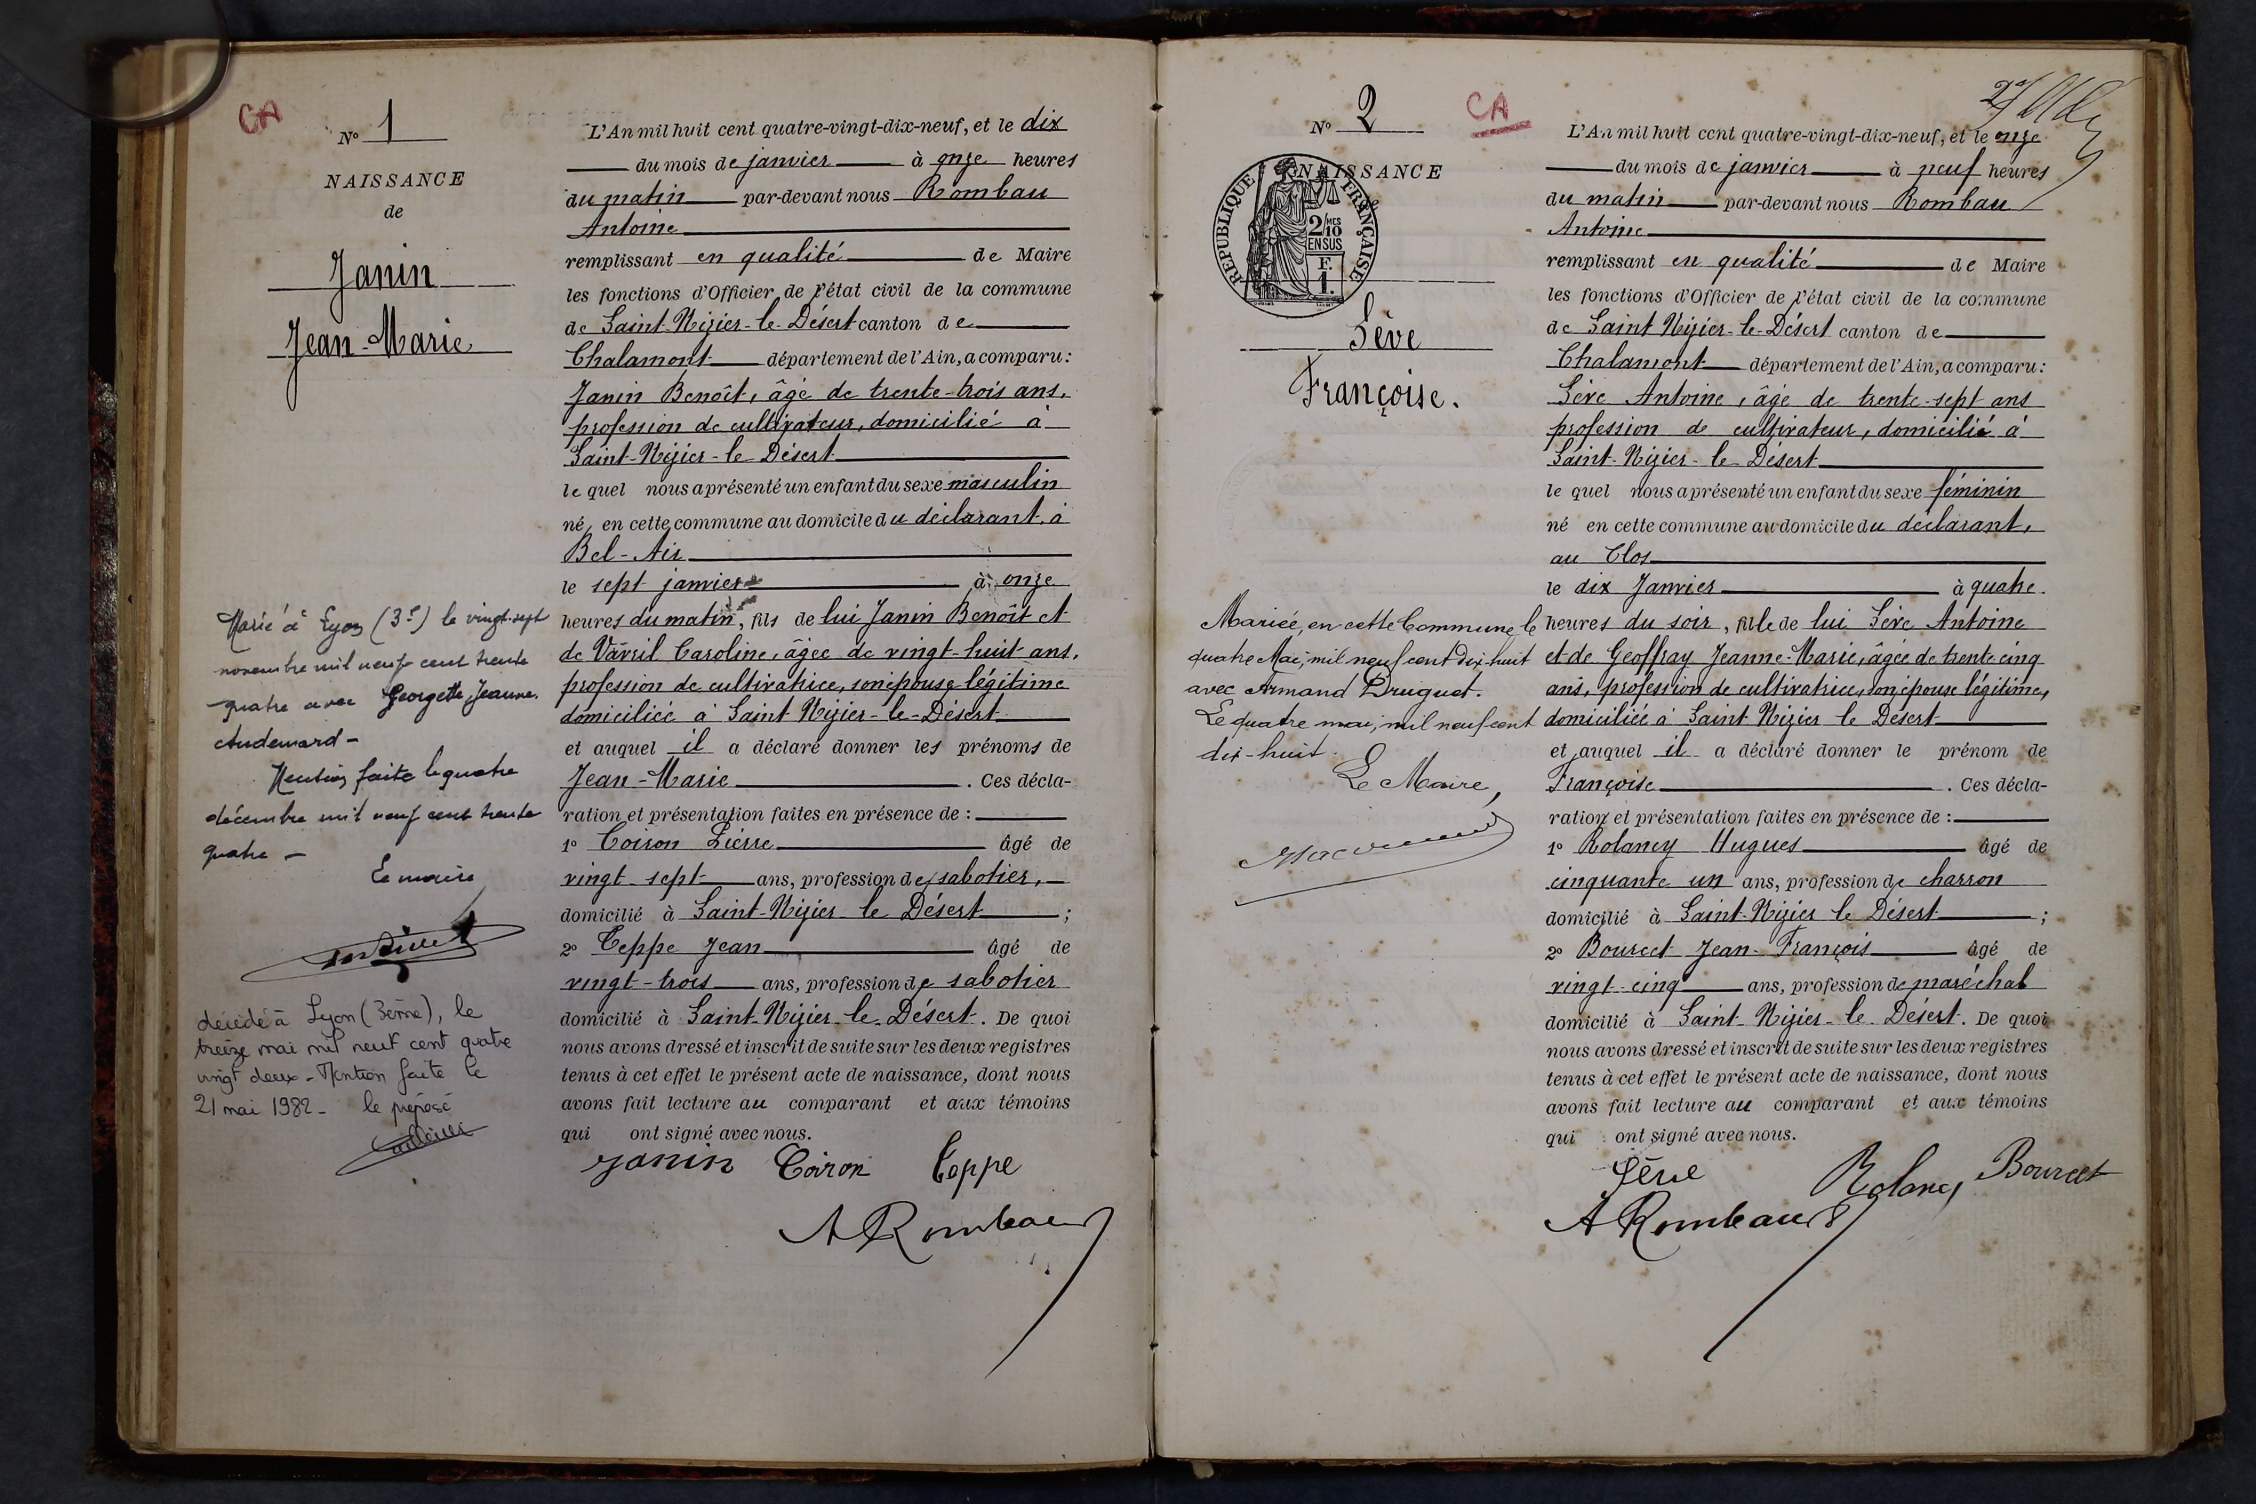 CA
Nº 1
NAISSANCE
de
Janin
Jean-Marie
L'An mil huit cent quatre-vingt-dix-neuf, et le dix
du mois de janvier à onze heures
du matin par-devant nous Rombau
Antoine
remplissant en qualité de Maire
les fonctions d'Officier de l'état civil de la commune
de Saint-Nizier-le-Désert canton de
Chalamont département de l'Ain, a comparu :
Janin Benoît, âgé de trente-trois ans,
profession de cultivateur, domicilié à
Saint-Nizier-le Désert
le quel nous a présenté un enfant du sexe masculin
né, en cette commune au domicile du déclarant, à
Bel-Air
le sept janvier à onze
heures du matin, fils de lui Janin Benoît et
de Vavril Caroline, âgée de vingt-huit ans,
profession de cultivatrice, son épouse légitime
domiciliée à Saint Nizier-le-Désert
et auquel il a déclaré donner les prénoms de
Jean-Marie . Ces décla-
ration et présentation faites en présence de :
1º Coiron Pierre âgé de
vingt-sept ans, profession de sabotier,
domicilié à Saint-Nizier le Désert ;
2º Teppe Jean âgé de
vingt-trois ans, profession de sabotier
domicilié à Saint-Nizier-le-Désert. De quoi
nous avons dressé et inscrit de suite sur les deux registres
tenus à cet effet le présent acte de naissance, dont nous
avons fait lecture au comparant et aux témoins
qui ont signé avec nous.
Janin Coiron Teppe
A Rombau
Marié à Lyon (3e) le vingt-sept
novembre mil neuf cent trente
quatre avec Georgette, Jeanne,
Audemard -
Mention faite le quatre
décembre mil neuf cent trente
quatre -
Le maire
décédé à Lyon (3ème), le
treize mai mil neuf cent quatre
vingt deux - Mention faite le
21 mai 1982 - le préposé
Nº 2
CA
NAISSANCE
de
RÉPUBLIQUE FRANÇAISE
2/10 MES
EN SUS
F.
1.
Sève
Françoise.
L'An mil huit cent quatre-vingt-dix-neuf, et le onze
du mois de janvier à neuf heures
du matin par-devant nous Rombau
Antoine
remplissant en qualité de Maire
les fonctions d'Officier de l'état civil de la commune
de Saint Nizier-le-Désert canton de
Chalamont département de l'Ain, a comparu :
Sève Antoine, âgé de trente-sept ans
profession de cultivateur, domicilié à
Saint-Nizier-le-Désert
le quel nous a présenté un enfant du sexe féminin
né en cette commune au domicile du déclarant,
au Clos
le dix Janvier à quatre.
heures du soir, fille de lui Sève Antoine
et de Geoffray Jeanne-Marie, âgée de trente cinq
ans, profession de cultivatrice, son épouse légitime,
domiciliée à Saint Nizier le Désert
et auquel il a déclaré donner le prénom de
Françoise . Ces décla-
ration et présentation faites en présence de :
1º Rolancy Hugues âgé de
cinquante un ans, profession de charron
domicilié à Saint-Nizier le Désert ;
2º Bourcet Jean-François âgé de
vingt-cinq ans, profession de maréchal
domicilié à Saint-Nizier-le-Désert. De quoi
nous avons dressé et inscrit de suite sur les deux registres
tenus à cet effet le présent acte de naissance, dont nous
avons fait lecture au comparant et aux témoins
qui ont signé avec nous.
Sève Rolancy Bourcet
A Rombau
Mariée, en cette Commune le
quatre Mai, mil neuf cent dix-huit
avec Armand Druguet.
Le quatre mai, mil neuf cent
dix-huit.
Le Maire,